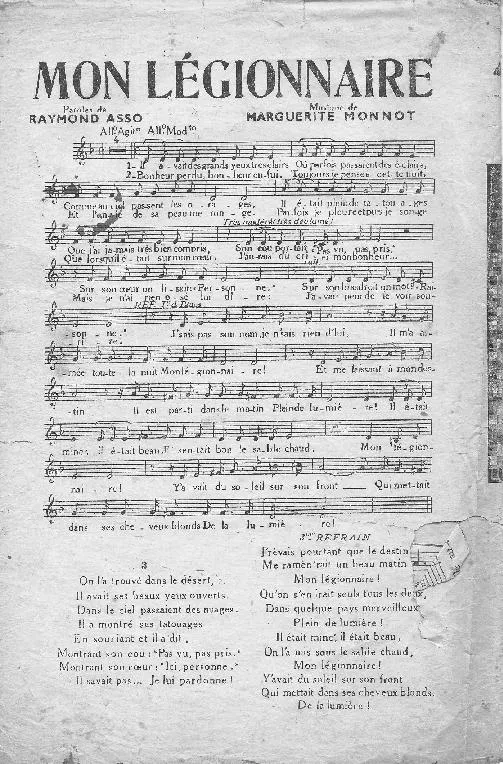 MON LÉGIONNAIRE
Paroles de
RAYMOND ASSO
Musique de
MARGUERITE MONNOT
All.o Agit.o All.o Mod.to
4
1- Il a- vait des grands yeux très clairs Où parfois passaient des éclairs,
2- Bonheur perdu, bon- heur en-fui, Toujours je pense à cet te nuit,
Comme au passent les o - ra - ges, Il é - tait plein de ta - tou - a - ges
Et l'en- de sa peau me ron - ge. Parfois je pleure et puis je son - ge
Très modéré très déclamé
Que j'ai ja-mais très bien compris, Son cou por-tait: "Pas vu, pas pris."
Que lorsqu'il é - tait sur mon cœur, J'au-rais dû cri- er mon bonheur...
Sur son cœur on li - sait: "Per - son - ne." Sur son bras droit un mot: "Rai-
Mais je n'ai rien o - sé lui di - re: J'a - vais peur de le voir sou-
REF. 1er & 2me
- son - ne." J'sais pas son nom, je n'sais rien d'lui, Il m'a ai-
- ri - re!
- mée tou-te la nuit Mon lé - gion - nai - re! Et me laissant à mon des-
- tin Il est par-ti dans le ma-tin Plein de lu - miè - re! Il é-tait
mince, il é-tait beau, Il sen-tait bon le sa-ble chaud, Mon lé - gion-
nai - re! Y'a vait du so - leil sur son front Qui met-tait
dans ses che - veux blonds De la lu - miè - re!
3
On l'a trouvé dans le désert,
Il avait ses beaux yeux ouverts.
Dans le ciel passaient des nuages.
Il a montré ses tatouages
En souriant et il a dit,
Montrant son cou: "Pas vu, pas pris."
Montrant son cœur: "Ici, personne."
Il savait pas... Je lui pardonne!
3me REFRAIN
J'rêvais pourtant que le destin
Me ramèn'rait un beau matin
Mon légionnaire!
Qu'on s'en irait seuls tous les deux,
Dans quelque pays merveilleux
Plein de lumière!
Il était mince il était beau,
On l'a mis sous le sable chaud,
Mon légionnaire!
Y'avait du soleil sur son front
Qui mettait dans ses cheveux blonds
De la lumière!